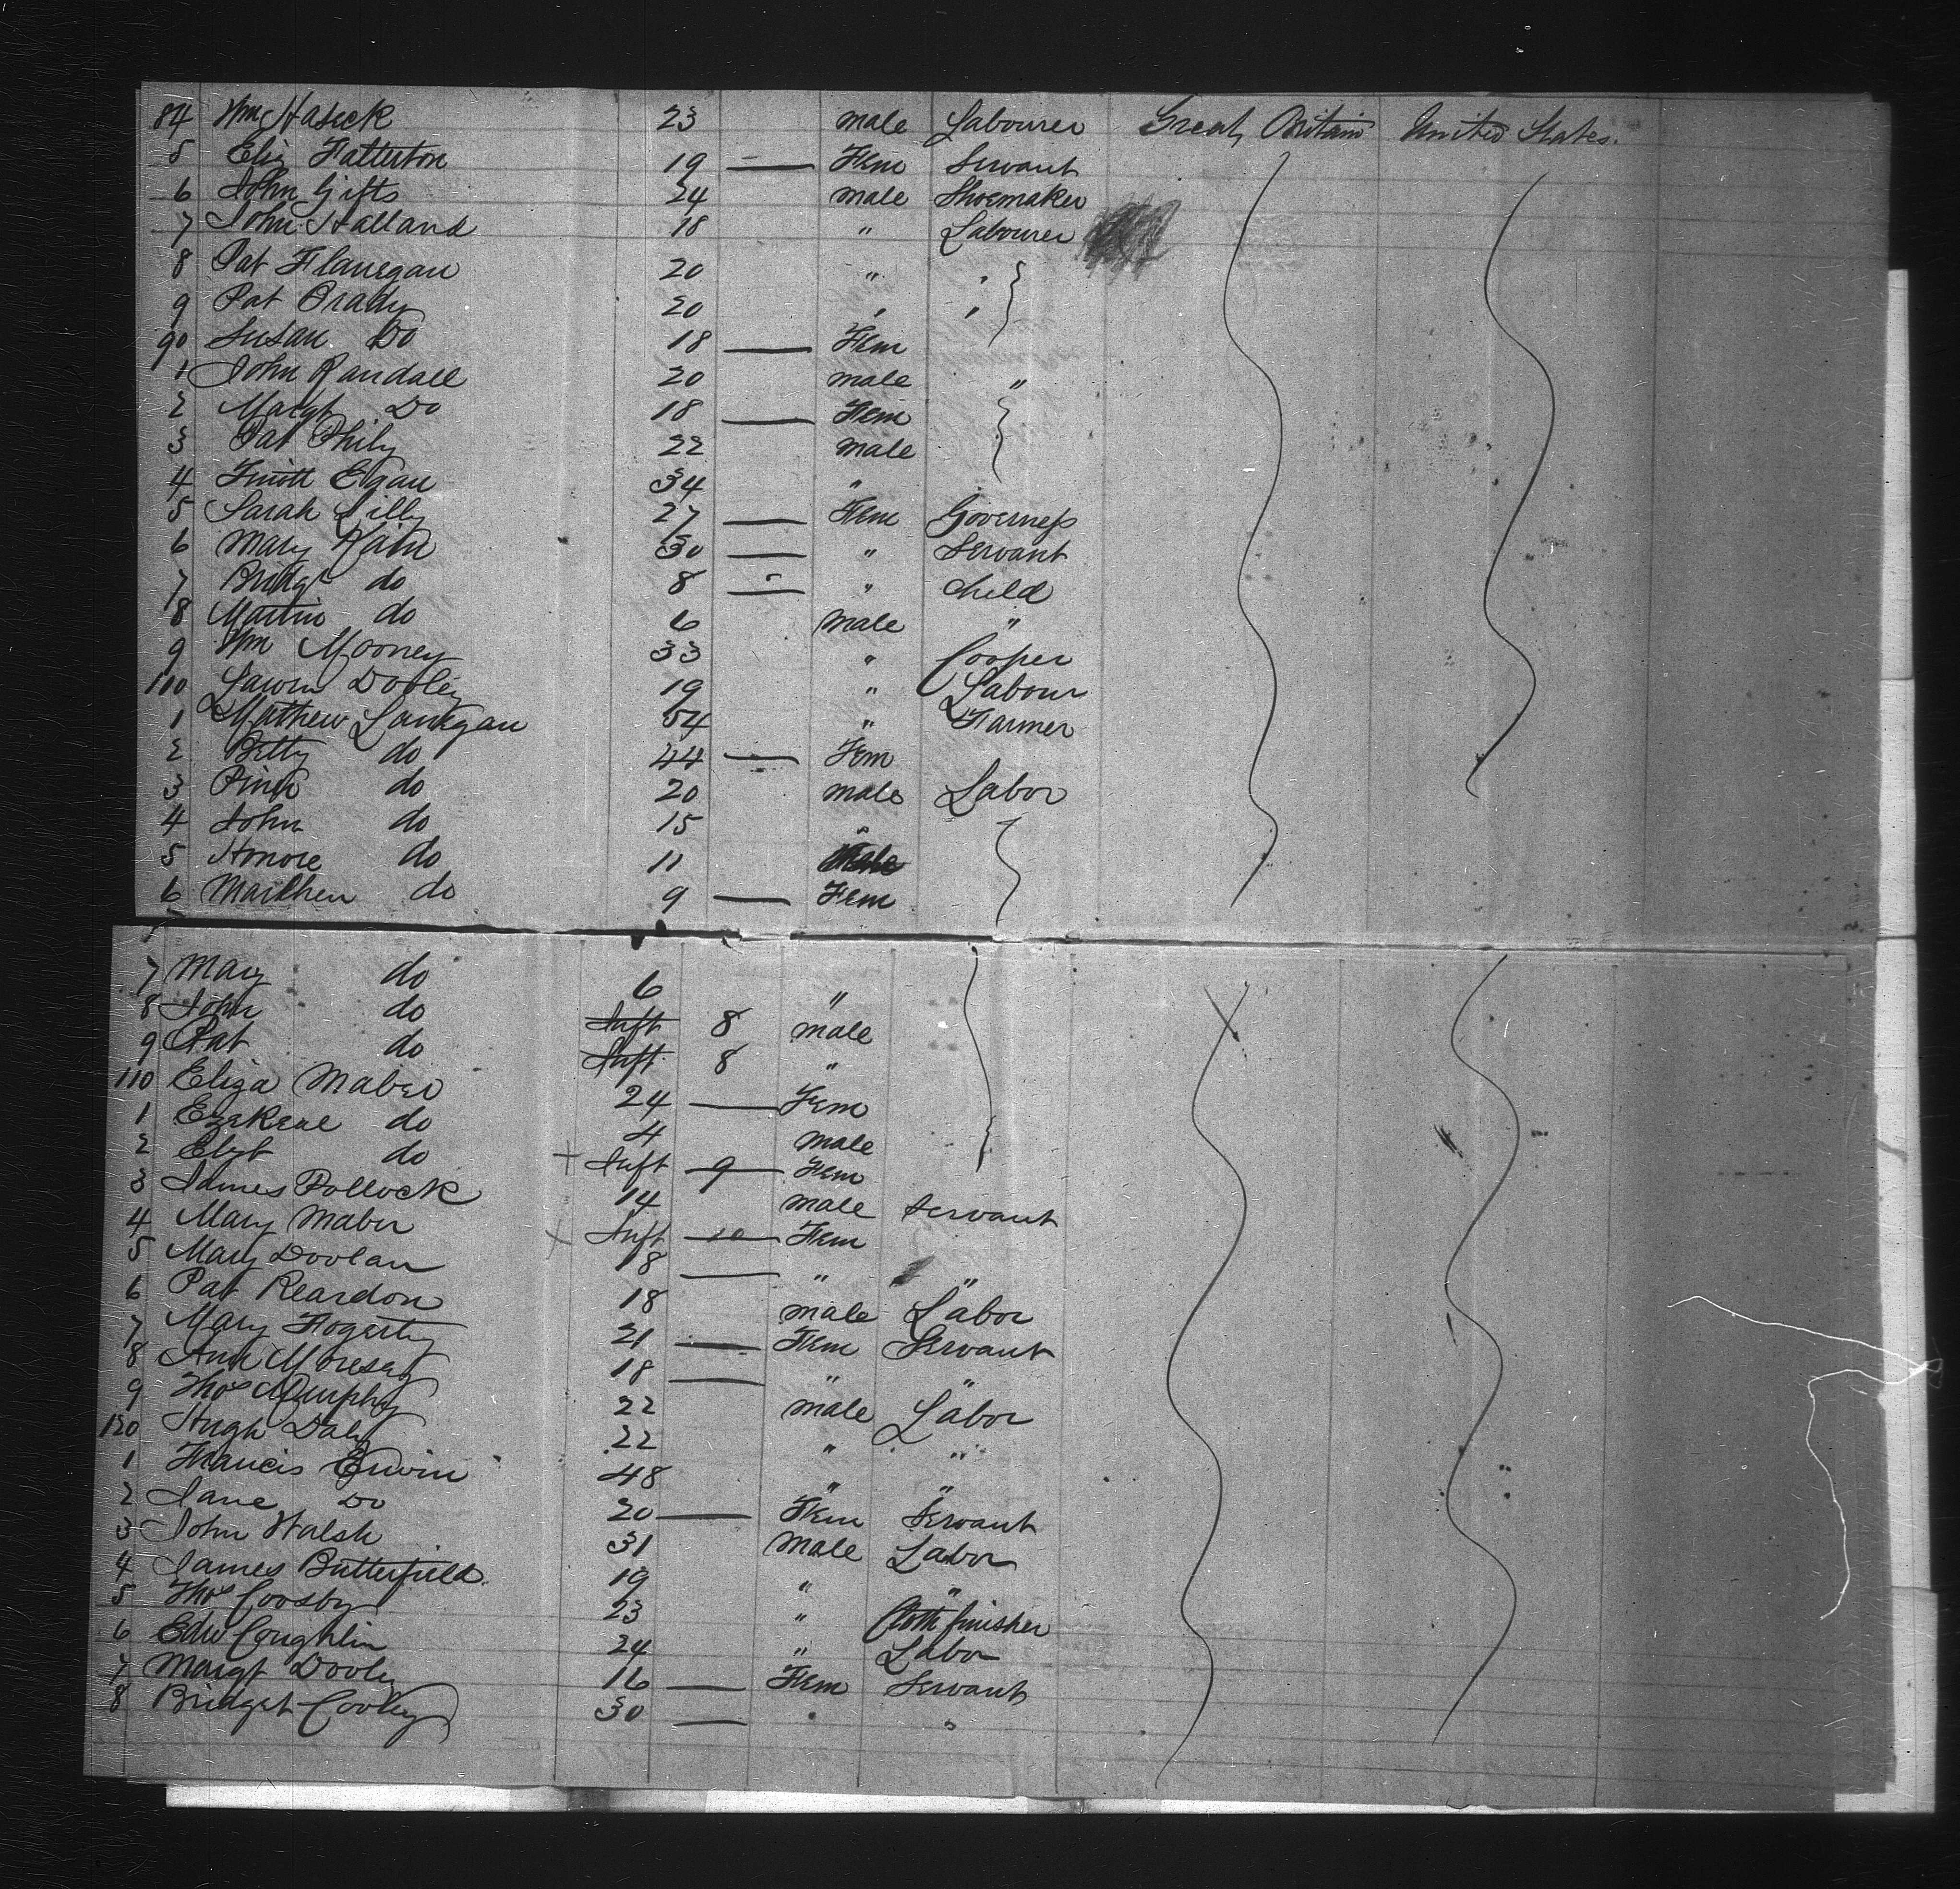 84 Wm Hasick 23 male Labourer Great Britain United States.
5 Eliz Fatterton 19 — Fem Servant
6 John Gifts 24 male Shoemaker
7 John Halland 18 " Labourer
8 Pat Flanegan 20 " "
9 Pat Brady 20 " "
90 Susan Do 18 — Fem
1 John Randall 20 male "
2 Margt Do 18 — Fem
3 Pat Phily 22 male
4 Egan 34 "
5 Sarah Lilly 27 — Fem Governess
6 Mary Kain 30 — " Servant
7 Bridgt do 8 — " Child
8 Martin do 6 male "
9 Wm Mooney 33 " Cooper
100 Dooley 19 " Labour
1 Mathew Lanegan 54 " Farmer
2 Betty do 44 — Fem
3 do 20 male Labor
4 John do 15 "
5 do 11
6 do 9 — Fem
7 Mary do 6 "
8 John do Inft 8 male
9 Pat do Inft 8 "
110 Eliza Maber 24 — Fem
1 Ezekeal do 4 male
2 Elizt do Inft 9 Fem
3 James Pollock 14 male Servant
4 Mary Maber Inft 10 Fem
5 Mary Doolan 18 — " "
6 Pat Reardon 18 male Labor
7 Mary Fogerty 21 — Fem Servant
8 Ann 18 — " "
9 Thos Murphy 22 male Labor
120 Hugh Daly 22 " "
1 Francis Erwin 48 " "
2 Jane Do 20 — Fem Servant
3 John Walsh 31 Male Labor
4 James Butterfield. 19 " "
5 Thos Coosby 23 " Cloth finisher
6 Edw Coughlin 24 " Labor
7 Margt Dooly 16 — Fem Servant
8 Bridget Cooley 30 — " "